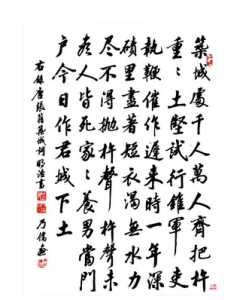 築城處千人萬人齊把杵
重〻土堅試行錐軍吏
執鞭催作遲来時一年深
磧里盡著短衣渴無水力
尽不得抛杵聲杵聲未
尽人皆死家〻養男當門
户今日作君城下土
右錄唐張籍築城詞